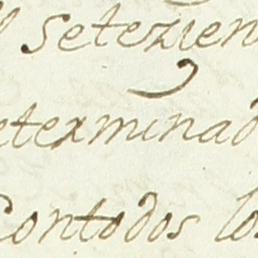 l setezien
determinad
Contodos los